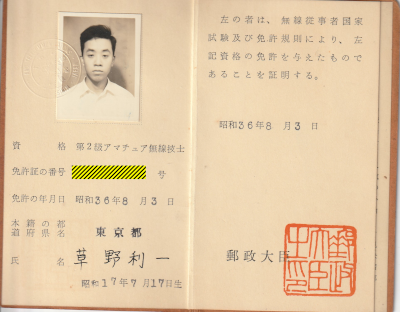 資格 第2級アマチュア無線技士
免許証の番号 号
免許の年月日 昭和36年8月3日
本籍の都道府県名 東京都
氏名 草野利一
昭和17年7月17日生
左の者は、無線従事者国家
試験及び免許規則により、左
記資格の免許を与えたもので
あることを証明する。
昭和36年8月3日
郵政大臣
郵政大臣之印